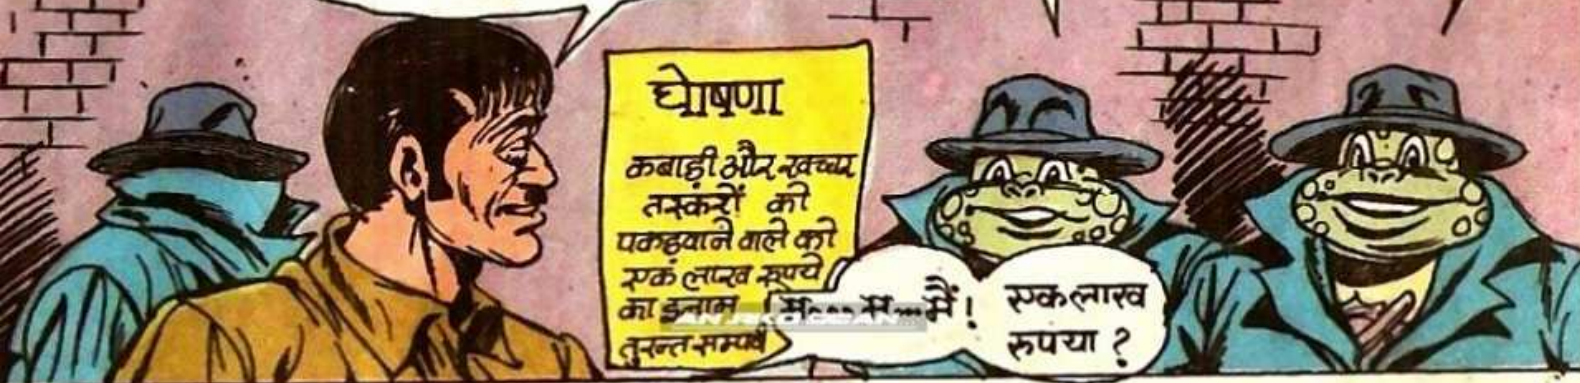 घोषणा
कबाड़ी और खच्चर
तस्करों को
पकड़वाने वाले को
एक लाख रूपये
का इनाम
तुरन्त सम्पर्क
म... म... मैं!
एक लाख
रुपया ?